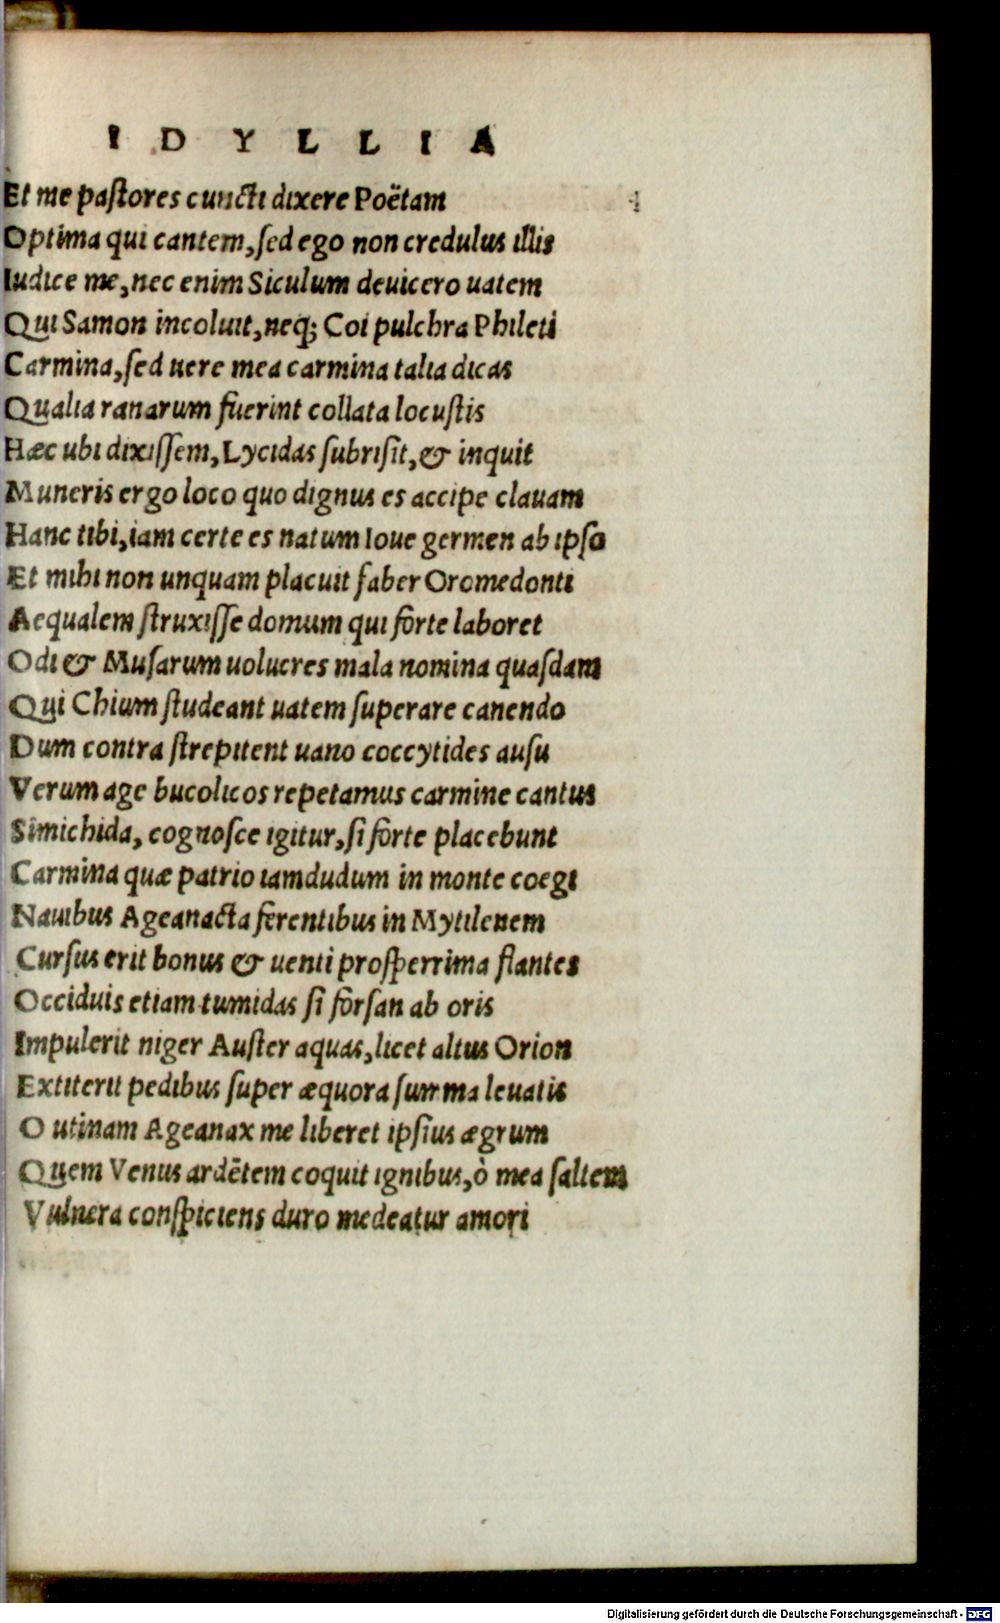 IDYLLIA
Et me paſtores cuncti dixere Poëtam
Optima qui cantem, ſed ego non credulus illis
Iudice me, nec enim Siculum deuicero uatem
Qui Samon incoluit, neq; Coi pulchra Phileti
Carmina, ſed uere mea carmina talia dicas
Qualia ranarum fuerint collata locuſtis
Hæc ubi dixiſſem, Lycidas ſubriſit, & inquit
Muneris ergo loco quo dignus es accipe clauam
Hanc tibi, iam certe es natum Ioue germen ab ipſo
Et mihi non unquam placuit faber Oromedonti
Aequalem ſtruxiſſe domum qui forte laboret
Odi & Muſarum uolucres mala nomina quaſdam
Qui Chium ſtudeant uatem ſuperare canendo
Dum contra ſtrepitent uano coccytides auſu
Verum age bucolicos repetamus carmine cantus
Simichida, cognoſce igitur, ſi forte placebunt
Carmina quæ patrio iamdudum in monte coegi
Nauibus Ageanacta ferentibus in Mytilenem
Curſus erit bonus & uenti proſperrima flantes
Occiduis etiam tumidas ſi forſan ab oris
Impulerit niger Auſter aquas, licet altus Orion
Extiterit pedibus ſuper æquora ſumma leuatis
O utinam Ageanax me liberet ipſius ægrum
Quem Venus ardētem coquit ignibus, ò mea ſaltem
Vulnera conſpiciens duro medeatur amori
Digitalisierung gefördert durch die Deutsche Forschungsgemeinschaft - DFG